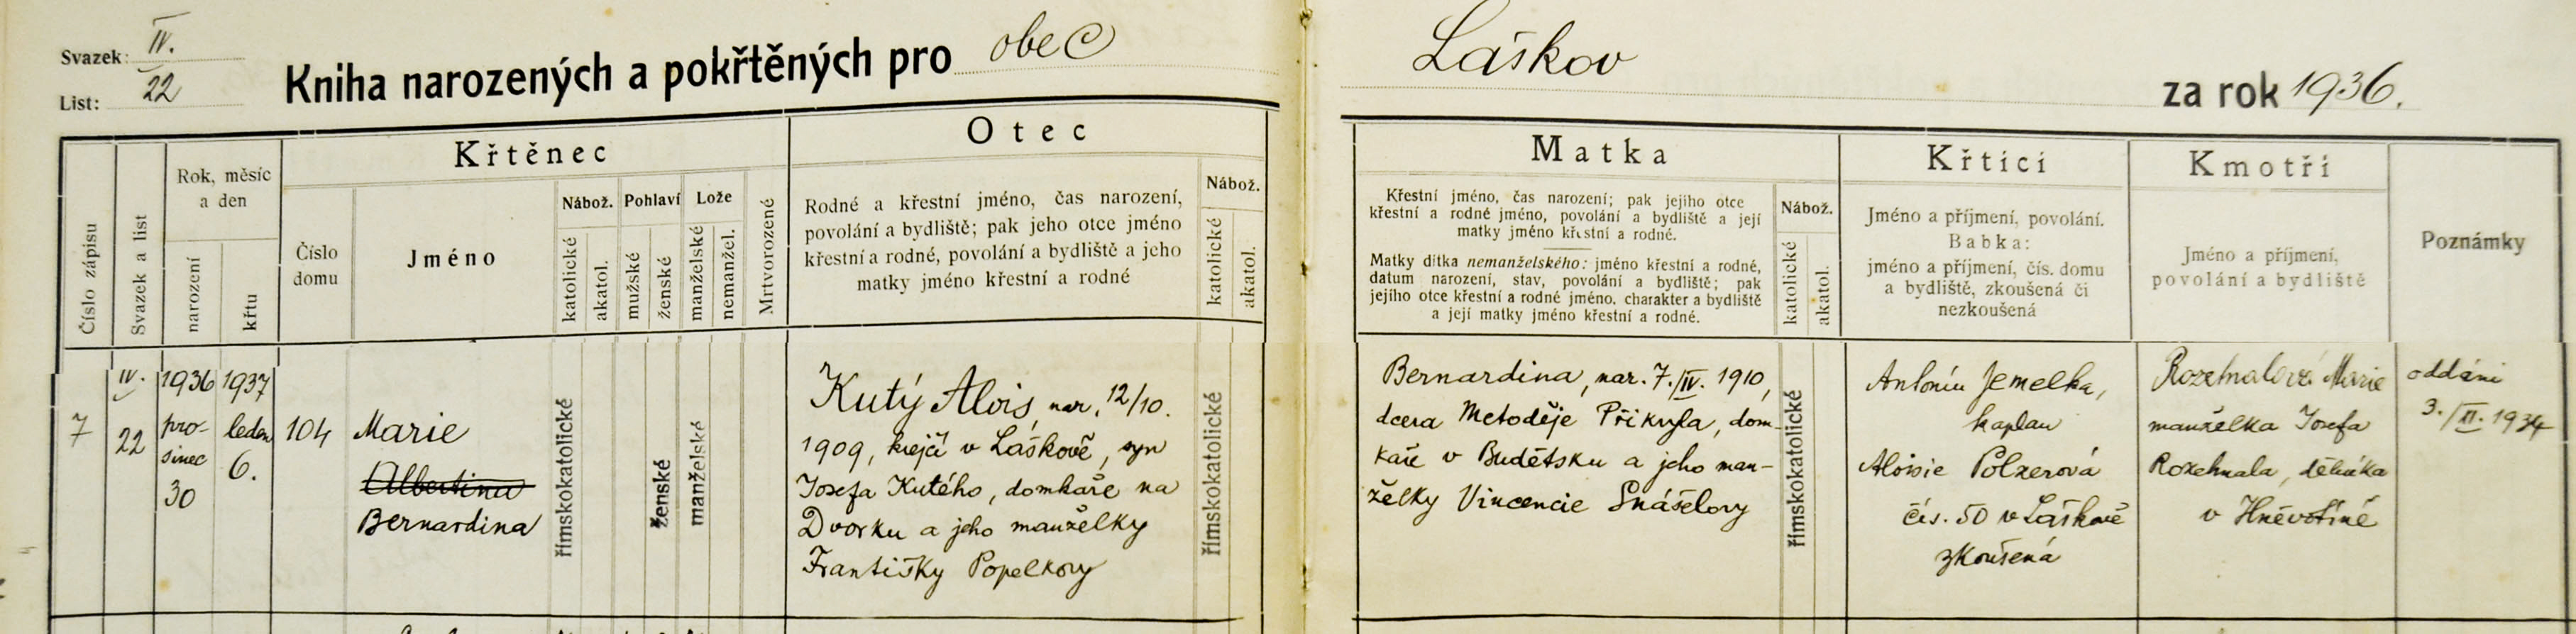 Svazek: IV.
List: 22
Kniha narozených a pokřtěných pro obec
Láškov
za rok 1936.
Číslo zápisu
Svazek a list
Rok, měsíc
a den
narození
křtu
Křtěnec
Číslo
domu
Jméno
Nábož.
katolické
akatol.
Pohlaví
mužské
ženské
Lože
manželské
nemanžel.
Mrtvorozené
Otec
Rodné a křestní jméno, čas narození,
povolání a bydliště; pak jeho otce jméno
křestní a rodné, povolání a bydliště a jeho
matky jméno křestní a rodné
Nábož.
katolické
akatol.
Matka
Křestní jméno, čas narození; pak jejího otce
křestní a rodné jméno, povolání a bydliště a její
matky jméno křestní a rodné.
Matky dítka nemanželského: jméno křestní a rodné,
datum narození, stav, povolání a bydliště; pak
jejího otce křestní a rodné jméno, charakter a bydliště
a její matky jméno křestní a rodné.
Nábož.
katolické
akatol.
Křtící
Jméno a příjmení, povolání.
Babka:
jméno a příjmení, čís. domu
a bydliště, zkoušená či
nezkoušená
Kmotří
Jméno a příjmení,
povolání a bydliště
Poznámky
7
IV.
22
1936
pro-
sinec
30
1937
leden
6.
104
Marie
Albertina
Bernardina
římskokatolické
ženské
manželské
Kutý Alois, nar. 12/10.
1909, krejčí v Láškově, syn
Josefa Kutého, domkaře na
Dvorku a jeho manželky
Františky Popelkovy
římskokatolické
Bernardina, nar. 7./IV. 1910,
dcera Metoděje Přikryla, dom-
kaře v Budětsku a jeho man-
želky Vincencie Snášelovy
římskokatolické
Antonín Jemelka,
kaplan
Aloisie Polzerová
čís. 50 v Láškově
zkoušená
Rozehnalová Marie
manželka Josefa
Rozehnala, dělníka
v Hněvotíně
oddáni
3./ 1934